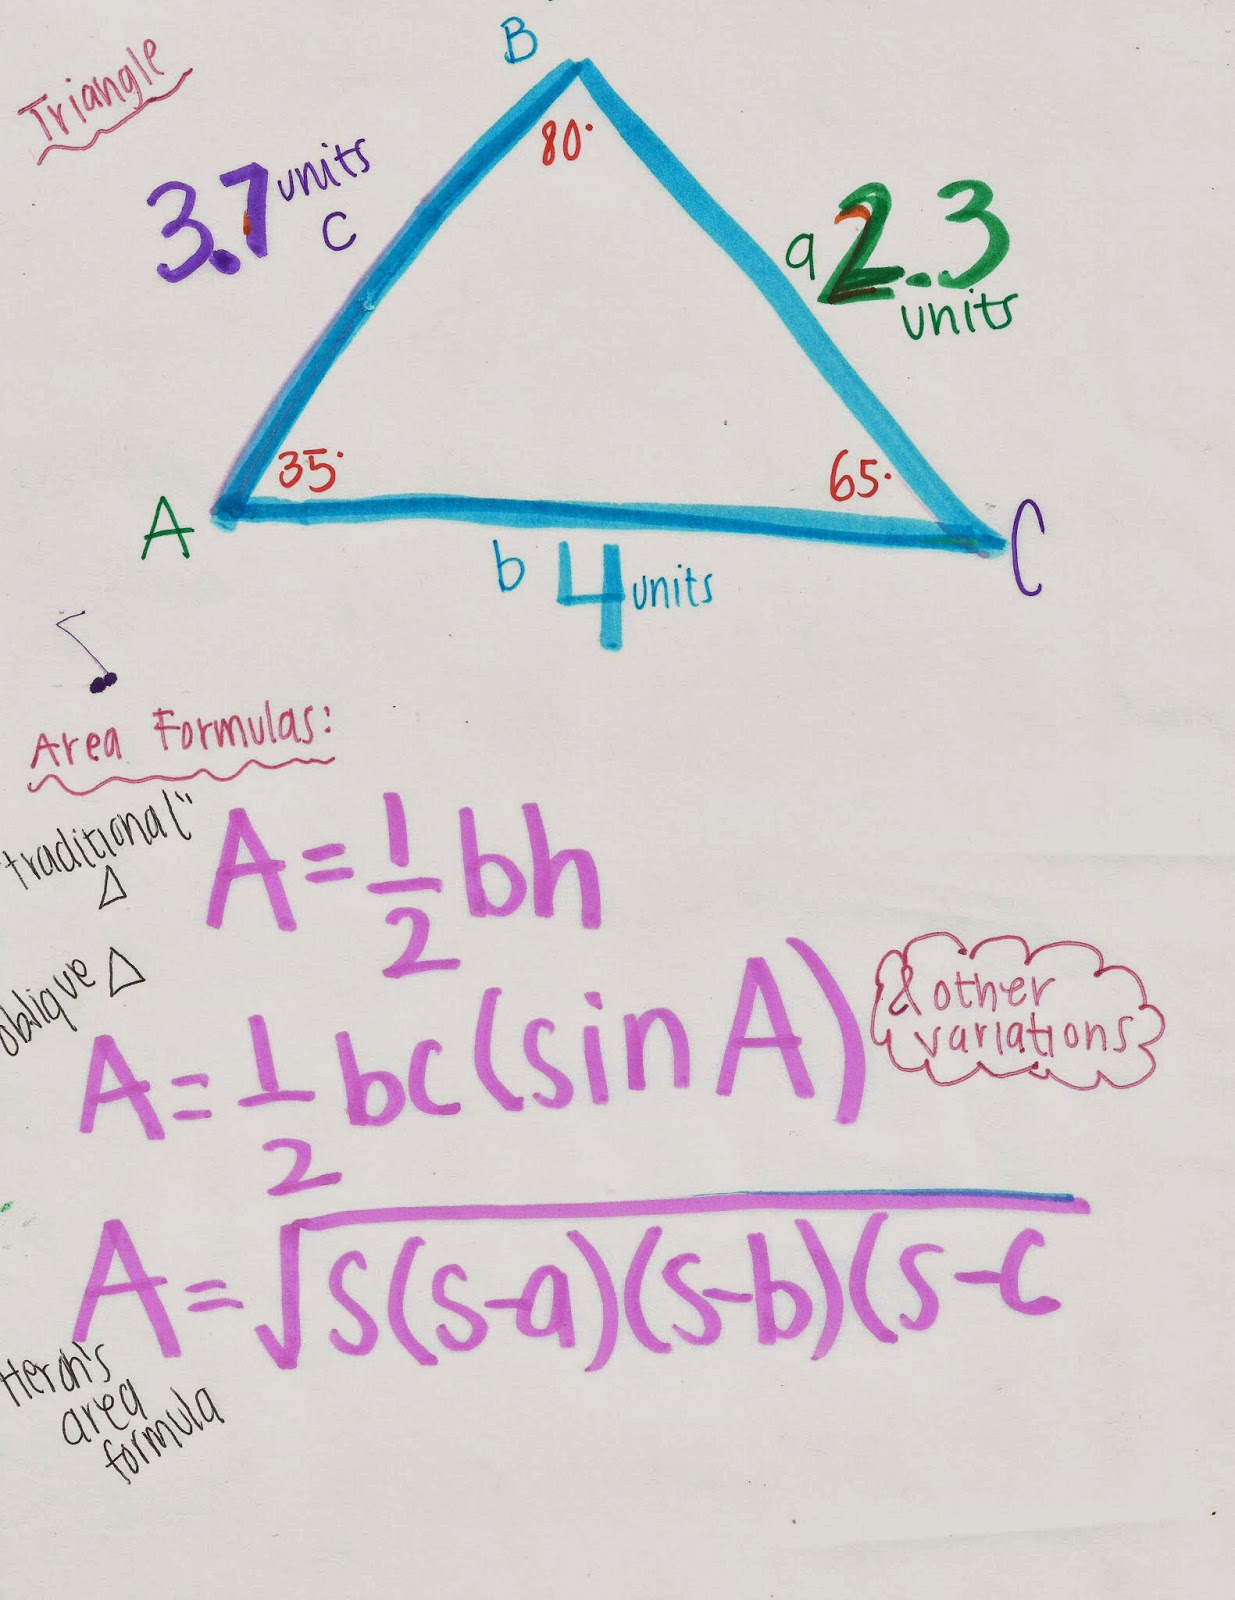 Triangle
B
80°
3.7 units
c
a 2.3
units
35°
65°
A
C
b 4 units
Area Formulas:
"traditional" △
A = 1/2 bh
oblique △
A = 1/2 bc (sin A)
& other
variations
A = √s(s-a)(s-b)(s-c
Heron's
area
formula